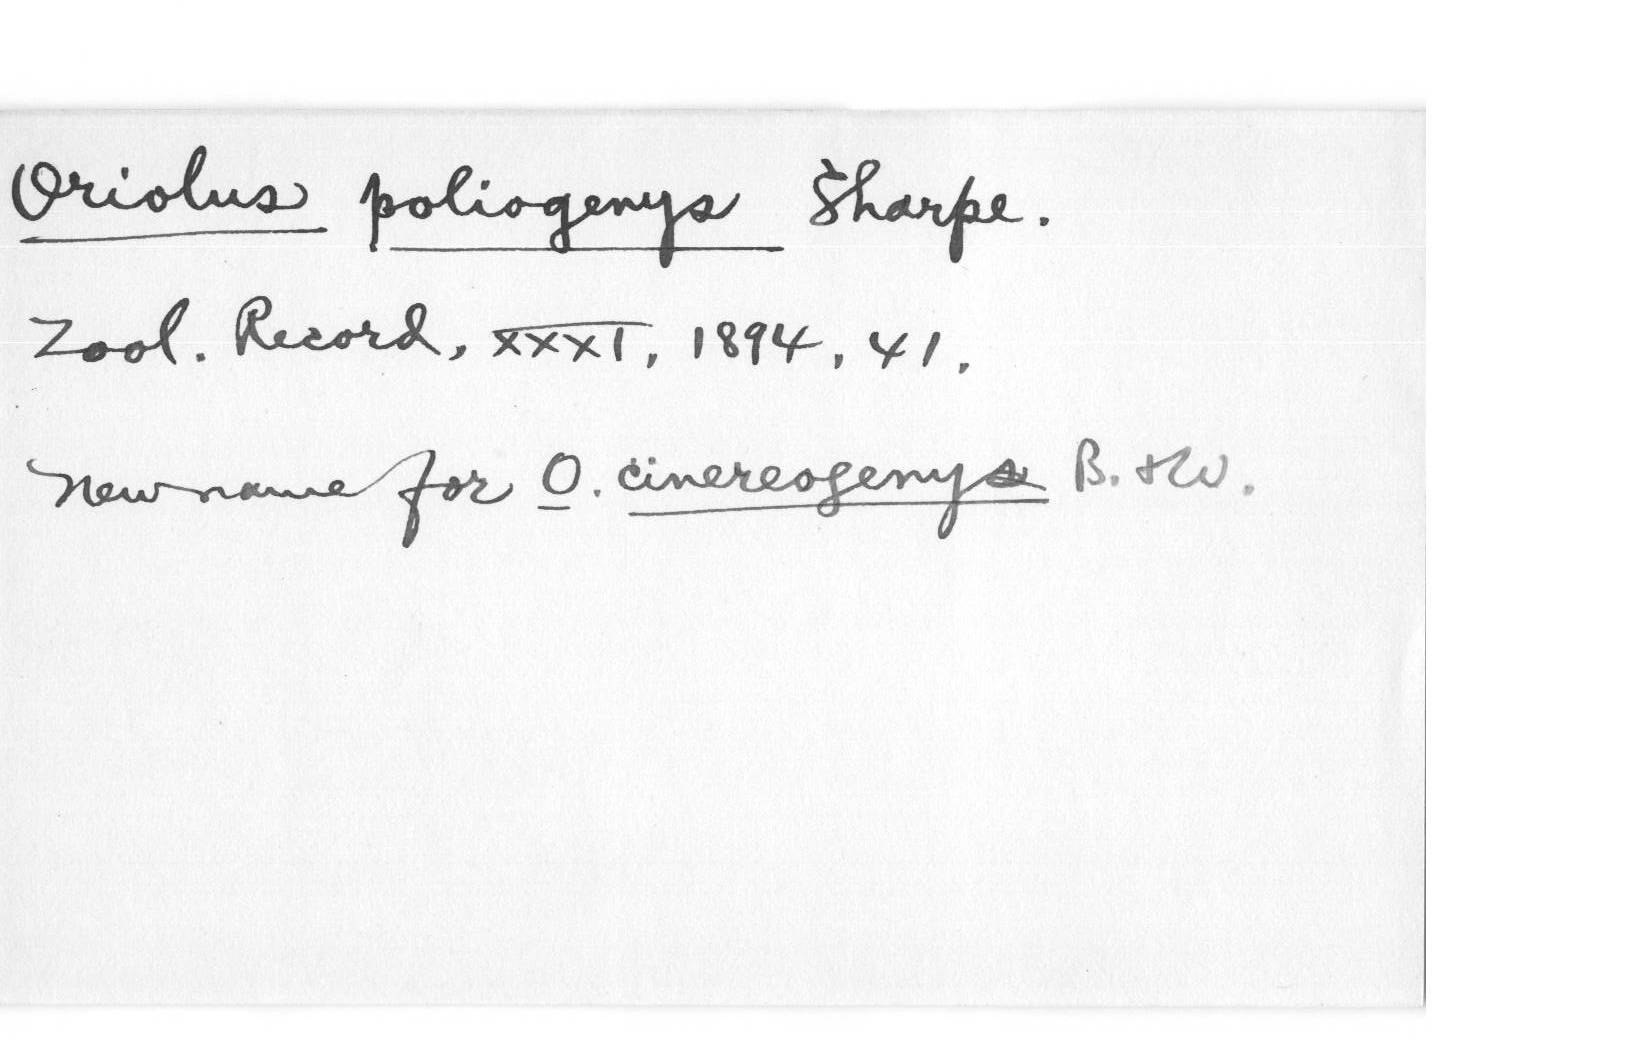 Oriolus poliogenys Sharpe.
Zool. Record, XXXI, 1894, 41.
New name for O. cinereogenys B. & W.